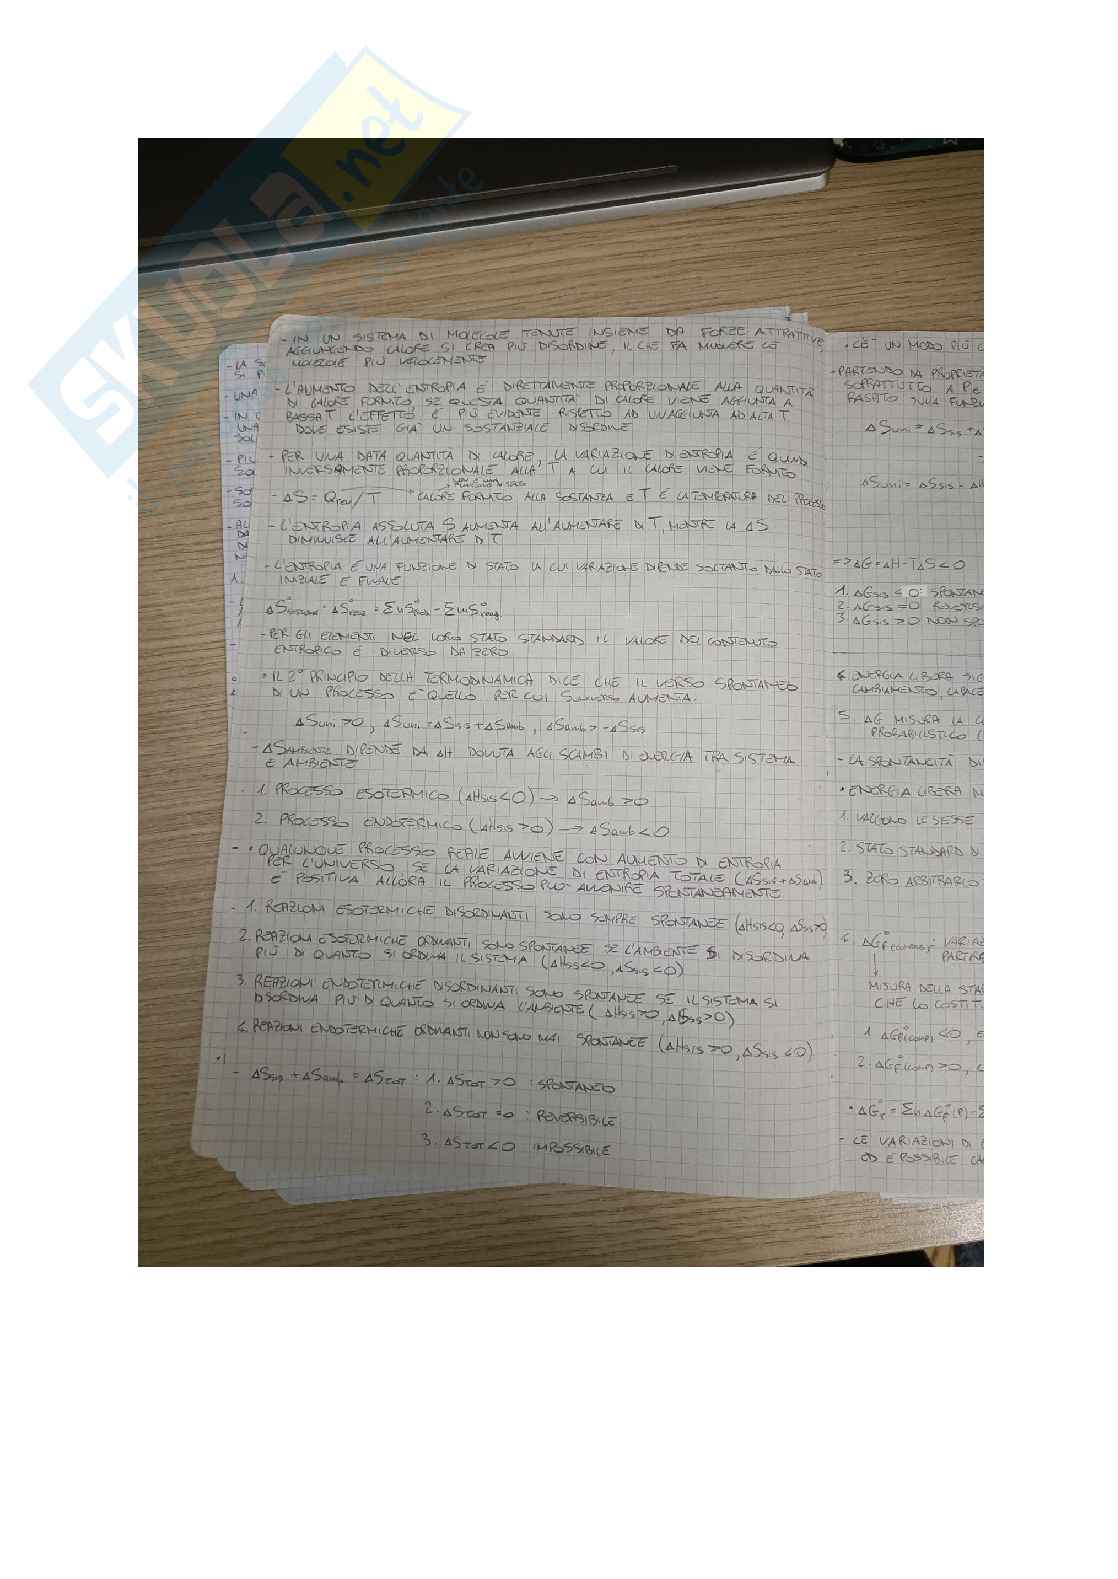 SKUOLA.net
- IN UN SISTEMA DI MOLECOLE TENUTE INSIEME DA FORZE ATTRATTIVE
AGGIUNGENDO CALORE SI CREA PIÙ DISORDINE, IL CHE FA MUOVERE LE
MOLECOLE PIÙ VELOCEMENTE
- L'AUMENTO DELL'ENTROPIA È DIRETTAMENTE PROPORZIONALE ALLA QUANTITÀ
DI CALORE FORNITO, SE QUESTA QUANTITÀ DI CALORE VIENE AGGIUNTA A
BASSA T L'EFFETTO È PIÙ EVIDENTE RISPETTO AD UN'AGGIUNTA AD ALTA T
DOVE ESISTE GIÀ UN SOSTANZIALE DISORDINE
- PER UNA DATA QUANTITÀ DI CALORE, LA VARIAZIONE DI ENTROPIA È QUINDI
INVERSAMENTE PROPORZIONALE ALLA T A CUI IL CALORE VIENE FORNITO
- ΔS = Qrev/T CALORE FORNITO ALLA SOSTANZA E T È LA TEMPERATURA DEL PROCESSO
- L'ENTROPIA ASSOLUTA S AUMENTA ALL'AUMENTARE DI T, MENTRE LA ΔS
DIMINUISCE ALL'AUMENTARE DI T
- L'ENTROPIA È UNA FUNZIONE DI STATO LA CUI VARIAZIONE DIPENDE SOLTANTO DALLO STATO
INIZIALE E FINALE
- PER GLI ELEMENTI NEL LORO STATO STANDARD IL VALORE DEL CONTENUTO
ENTROPICO È DIVERSO DA ZERO
• IL 2° PRINCIPIO DELLA TERMODINAMICA DICE CHE IL VERSO SPONTANEO
DI UN PROCESSO È QUELLO PER CUI Suniverso AUMENTA.
ΔSuni >0, ΔSuni = ΔSsis + ΔSamb, ΔSamb > -ΔSsis
- ΔSAMBIENTE DIPENDE DA ΔH DOVUTA AGLI SCAMBI DI ENERGIA TRA SISTEMA
E AMBIENTE
1. PROCESSO ESOTERMICO (ΔHsis<0) → ΔSamb >0
2. PROCESSO ENDOTERMICO (ΔHsis >0) → ΔSamb <0
- • QUALUNQUE PROCESSO REALE AVVIENE CON AUMENTO DI ENTROPIA
PER L'UNIVERSO SE LA VARIAZIONE DI ENTROPIA TOTALE (ΔSsis + ΔSamb)
È POSITIVA ALLORA IL PROCESSO PUÒ AVVENIRE SPONTANEAMENTE
- 1. REAZIONI ESOTERMICHE DISORDINANTI SONO SEMPRE SPONTANEE (ΔHsis<0, ΔSsis>0)
2. REAZIONI ESOTERMICHE ORDINANTI SONO SPONTANEE SE L'AMBIENTE SI DISORDINA
PIÙ DI QUANTO SI ORDINA IL SISTEMA (ΔHsis<0, ΔSsis<0)
3. REAZIONI ENDOTERMICHE DISORDINANTI SONO SPONTANEE SE IL SISTEMA SI
DISORDINA PIÙ DI QUANTO SI ORDINA L'AMBIENTE (ΔHsis>0, ΔSsis>0)
4. REAZIONI ENDOTERMICHE ORDINANTI NON SONO MAI SPONTANEE (ΔHsis >0, ΔSsis <0)
- ΔSsis + ΔSamb = ΔSTOT : 1. ΔSTOT >0 : SPONTANEO
2. ΔSTOT =0 : REVERSIBILE
3. ΔSTOT <0 IMPOSSIBILE
• C'È UN MODO PIÙ
- PARTENDO DA PROPRIETÀ
SOPRATTUTTO A P e
BASATO SULLA
ΔSuni = ΔSsis +
ΔSuni = ΔSsis - ΔH
=> ΔG = ΔH - TΔS < 0
1. ΔGsis < 0:
2. ΔGsis =0
3. ΔGsis >0 NON
ENERGIA LIBERA
CAMBIAMENTO,
5. ΔG MISURA LA
PROBABILISTICO
- LA SPONTANEITÀ
• ENERGIA LIBERA
1. VALGONO LE STESSE
2. STATO STANDARD DI
3. ZERO ARBITRARIO
MISURA DELLA
CHE LO
- LE VARIAZIONI DI
ED È POSSIBILE